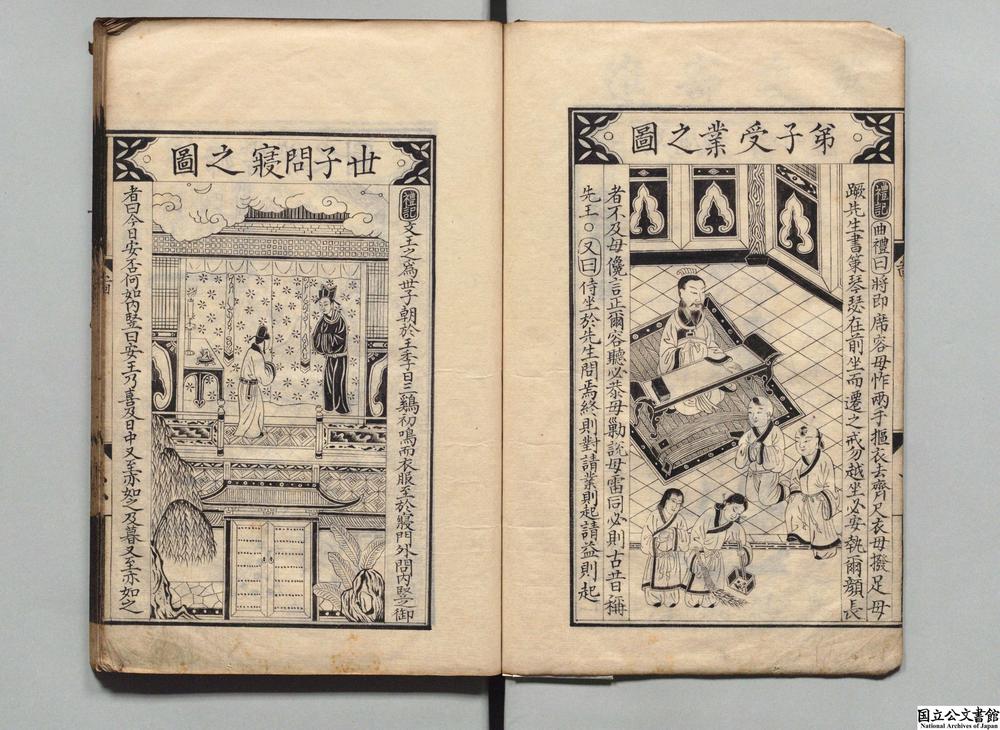 弟子受業之圖
禮記 曲禮曰將即席容毋怍兩手摳衣去齊尺衣毋撥足毋
蹶先生書策琴瑟在前坐而遷之戒勿越坐必安執爾顏長
者不及毋儳言正爾容聽必恭毋勦說毋雷同必則古昔稱
先王○又曰侍坐於先生問焉終則對請業則起請益則起
世子問寢之圖
禮記 文王之爲世子朝於王季日三鷄初鳴而衣服至於寢門外問內竪之御
者曰今日安否何如內竪曰安王乃喜及日中又至亦如之及暮又至亦如之
国立公文書館
National Archives of Japan